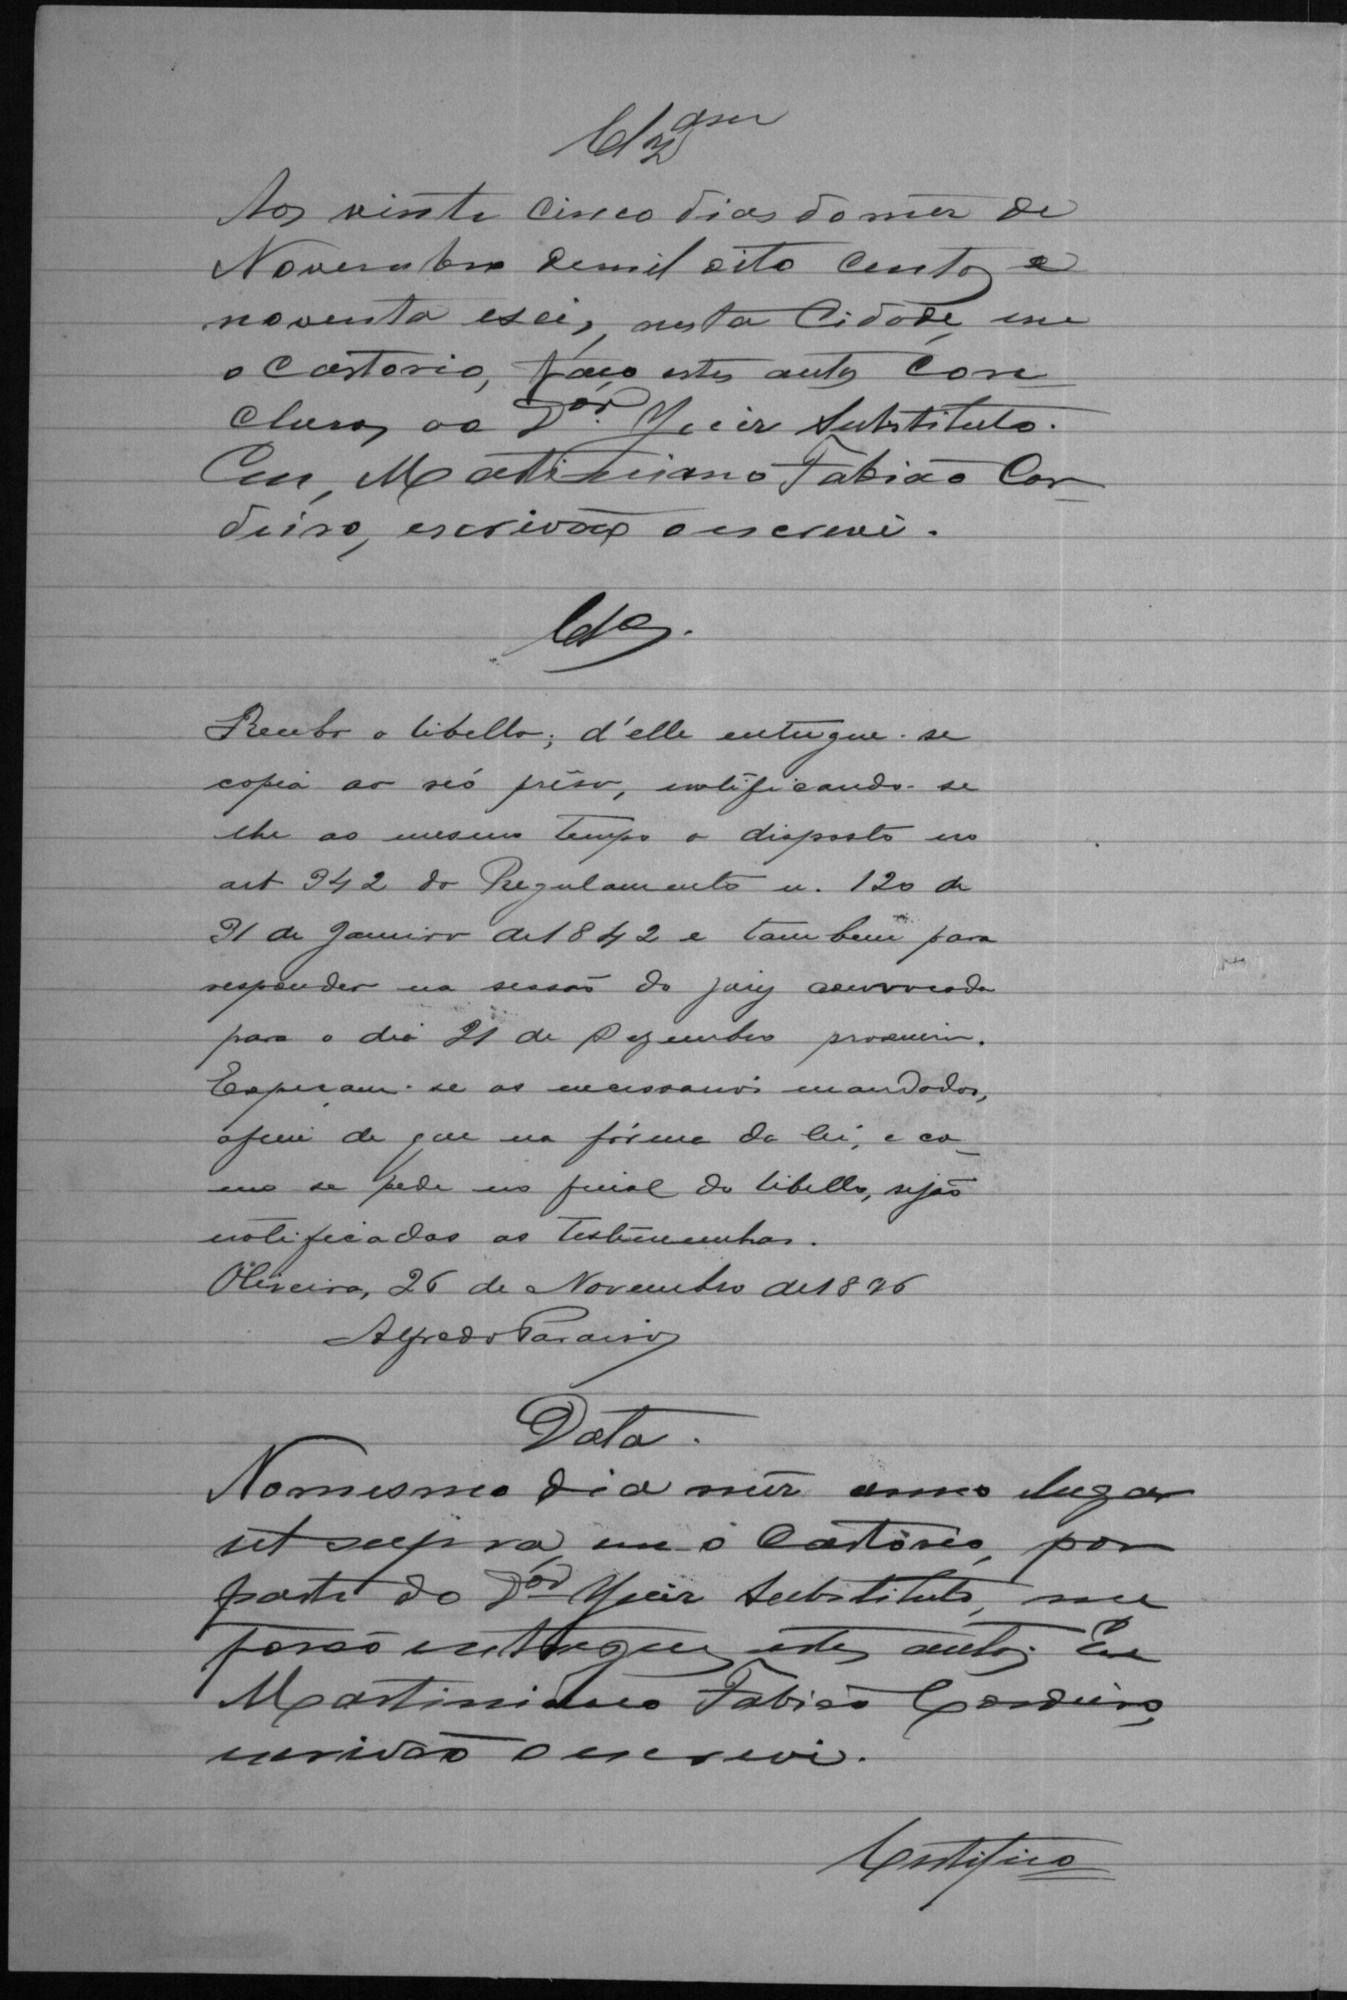 Clzam
Aos vinte cinco dias do mez de
Novembro de mil oito centos e
noventa e seis, nesta Cidade, em
o Cartorio, faço estes autos Con
clusos ao Dor. Juiz Substituto.
Eu, Martiniano Fabião Cor
deiro, escrivão o escrevi.
Clos.
Recebo o libello; d'elle entregue-se
copia ao réo prêso, notificando-se
lhe ao mesmo tempo o disposto no
art 342 do Regulamento n. 120 de
31 de Janeiro de 1842 e tambem para
responder na sessão do jury convocada
para o dia 21 de Dezembro proximo.
Expeçam-se os necessarios mandados,
afim de que na fórma da lei, e co-
mo se pede no final do libello, sejão
notificadas as testemunhas.
Oliveira, 26 de Novembro de 1896
Alfredo Paraiso
Data.
No mesmo dia mez anno lugar
ut supra, em o Cartório, por
parte do Dor Juiz Substituto, me
forão entregues estes autos. Eu
Martiniano Fabião Cordeiro,
escrivão o escrevi.
Certifico